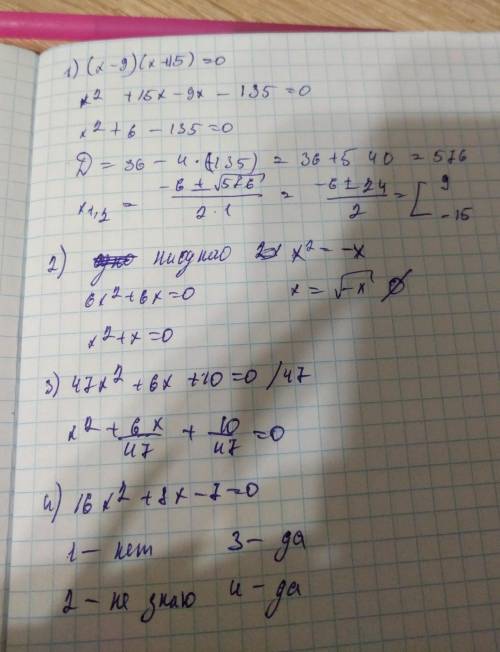 1) (x-9)(x+15)=0
x² +15x-9x-135=0
x²+6-135=0
D=36-4·(-135)=36+540=576
x₁,₂ = (-6±√576)/(2·1) = (-6±24)/2 = [9 -15
2) x²=-x
6x²+6x=0 x=√-x ∅
x²+x=0
3) 47x²+6x+10=0 /47
x²+6x/47+10/47=0
4) 16x²+8x-7=0
1 - нет 3 - да
2 - не знаю 4 - да